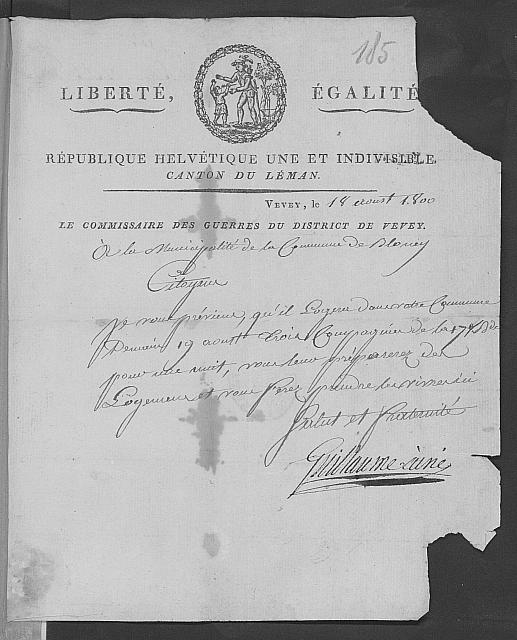 185
LIBERTÉ, ÉGALITÉ
RÉPUBLIQUE HELVÉTIQUE UNE ET INDIVISIBLE.
CANTON DU LÉMAN.
VEVEY, le 18 aoust 1800
LE COMMISSAIRE DES GUERRES DU DISTRICT DE VEVEY.
A la Municipalité de la Commune de Blonay
Citoyens
Je vous préviens, qu'il Logera dans votre Commune
Demain 19 aoust Trois Compagnies de la
pour une nuit, vous leur préparerez des
Logemens et vous ferez prendre les vivres ici
Salut et Fraternité
Guillaume Lainé